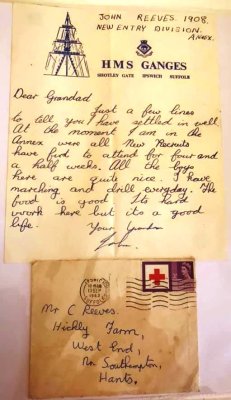 JOHN REEVES. 1908.
NEW ENTRY DIVISION.
ANNEX.
HMS GANGES
SHOTLEY GATE IPSWICH SUFFOLK
Dear Grandad
Just a few lines
to tell you I have settled in well.
At the moment I am in the
Annex were all New Recruits
have first to attend for four and
a half weeks. All the boys
here are quite nice. I have
marching and drill everyday. The
food is good. Its hard
work here but its a good
life.
Your Grandson
John.
IPSWICH
SUFFOLK
Mr C Reeves.
Hickly Farm,
West End,
Nr Southampton,
Hants.